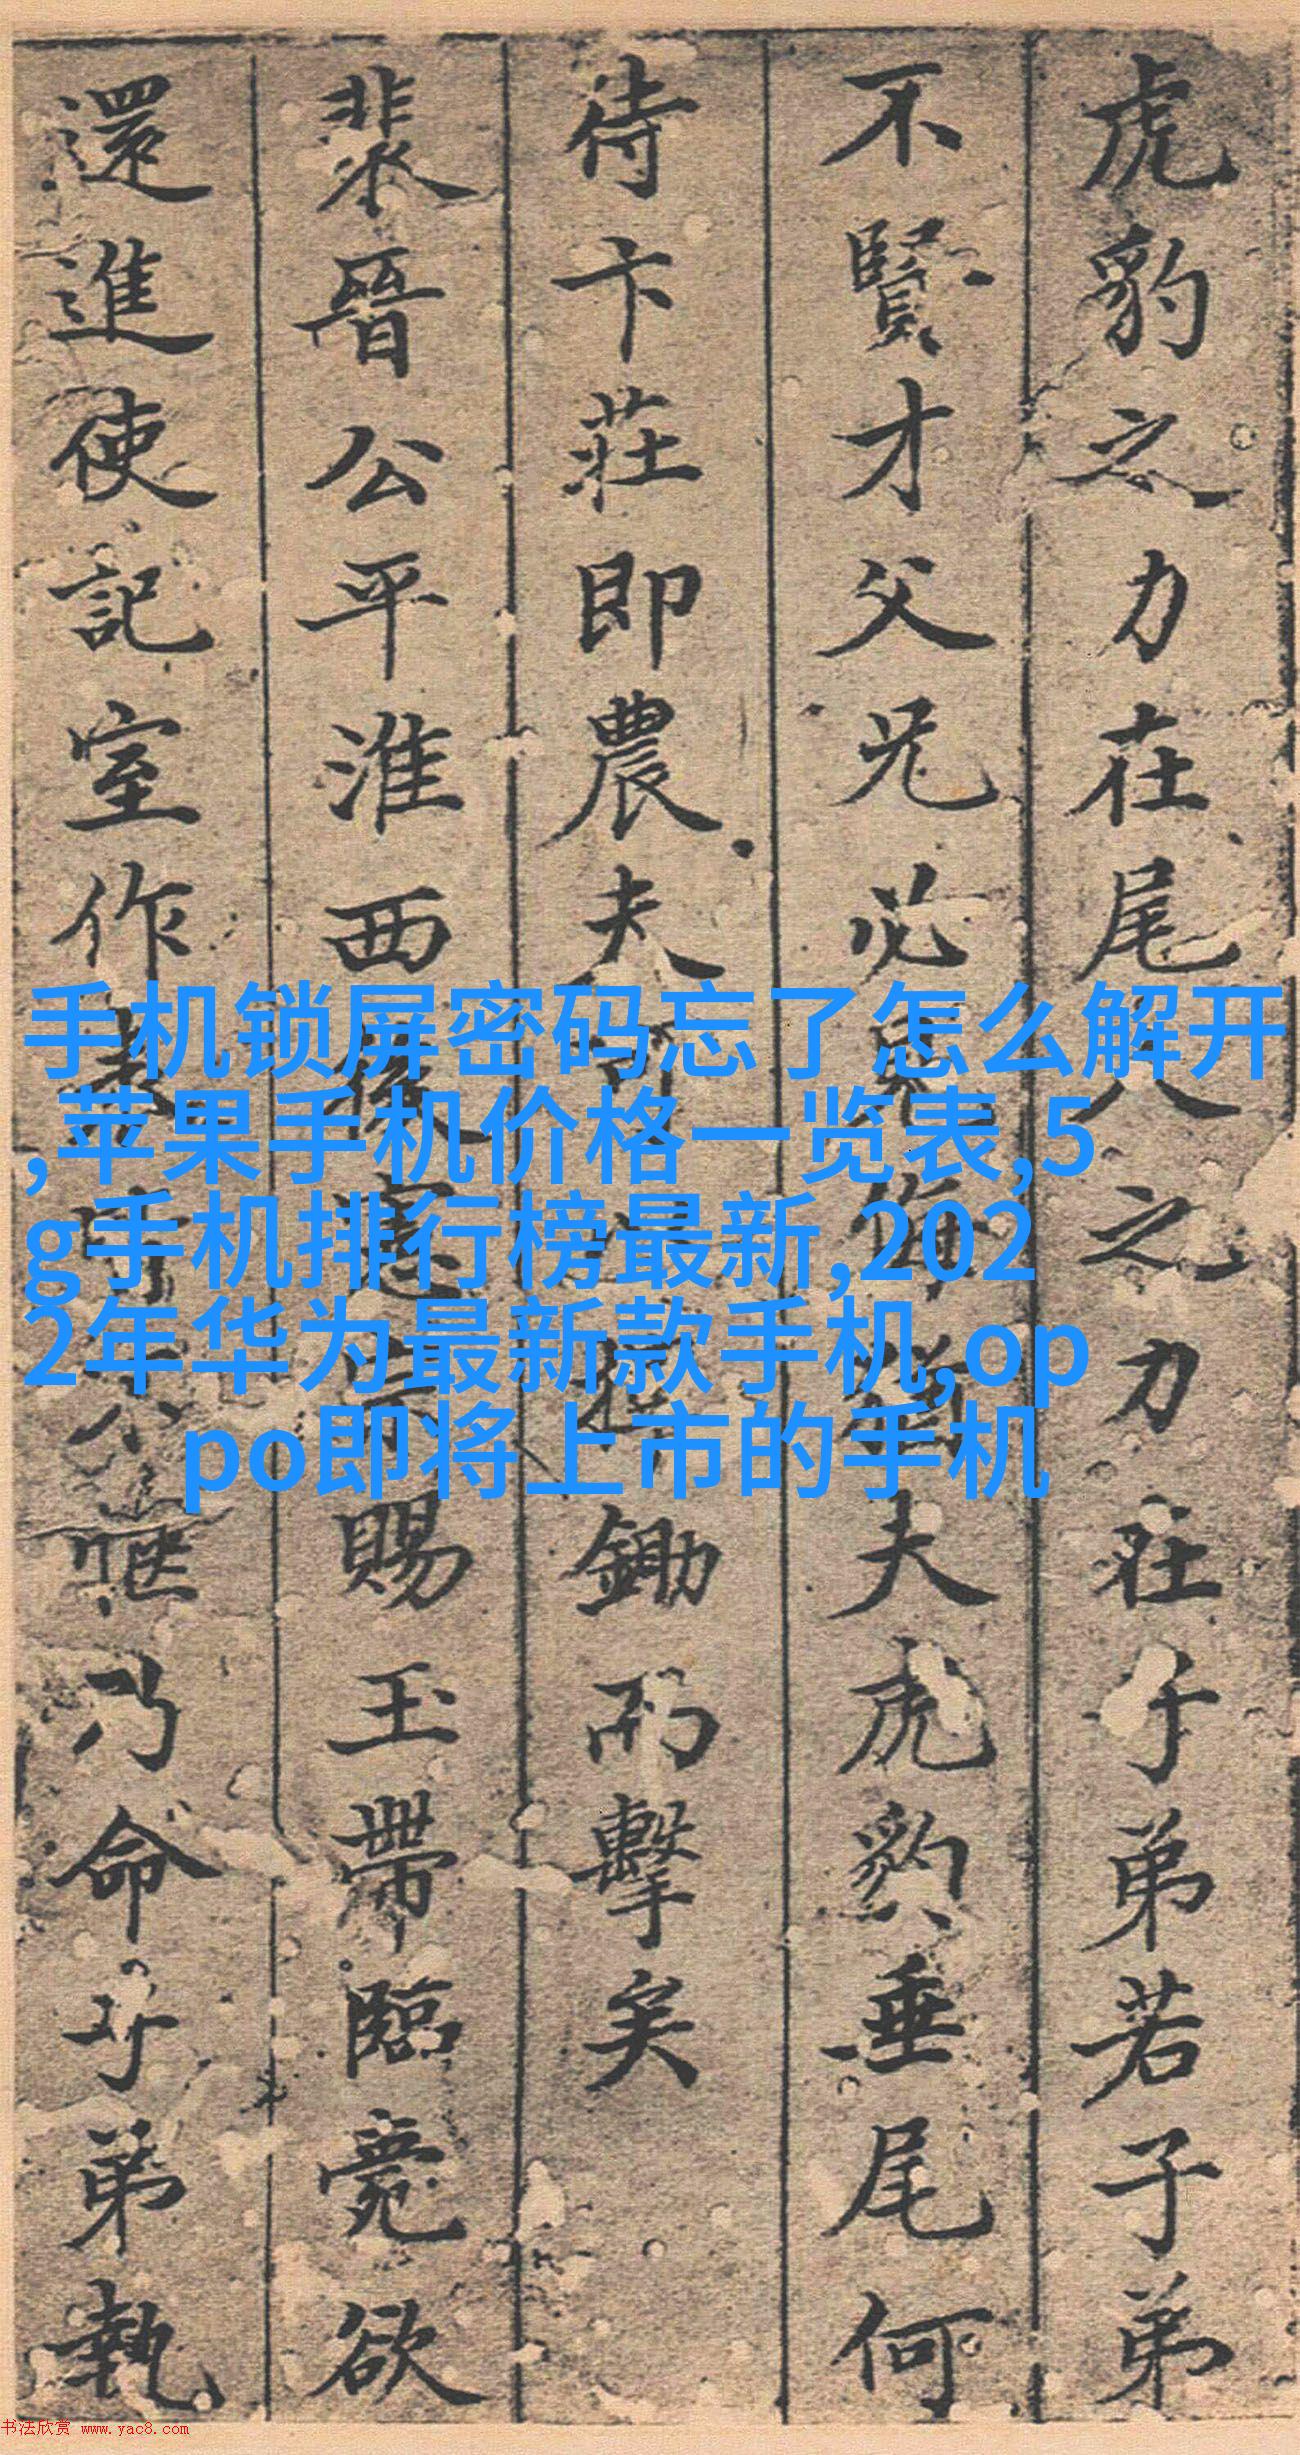 虎豹之力在尾人之力在子弟若子弟
不賢才父兄必侮猶夫虎豹垂尾何
待卞莊即農夫可鋤而擊矣
裴晉公平淮西後憲宗賜玉帶臨薨欲
還進使記室作表皆不愜乃命子弟執
手机锁屏密码忘了怎么解开
,苹果手机价格一览表,5
g手机排行榜最新,202
2年华为最新款手机,op
po即将上市的手机
书法欣赏 www.yac8.com